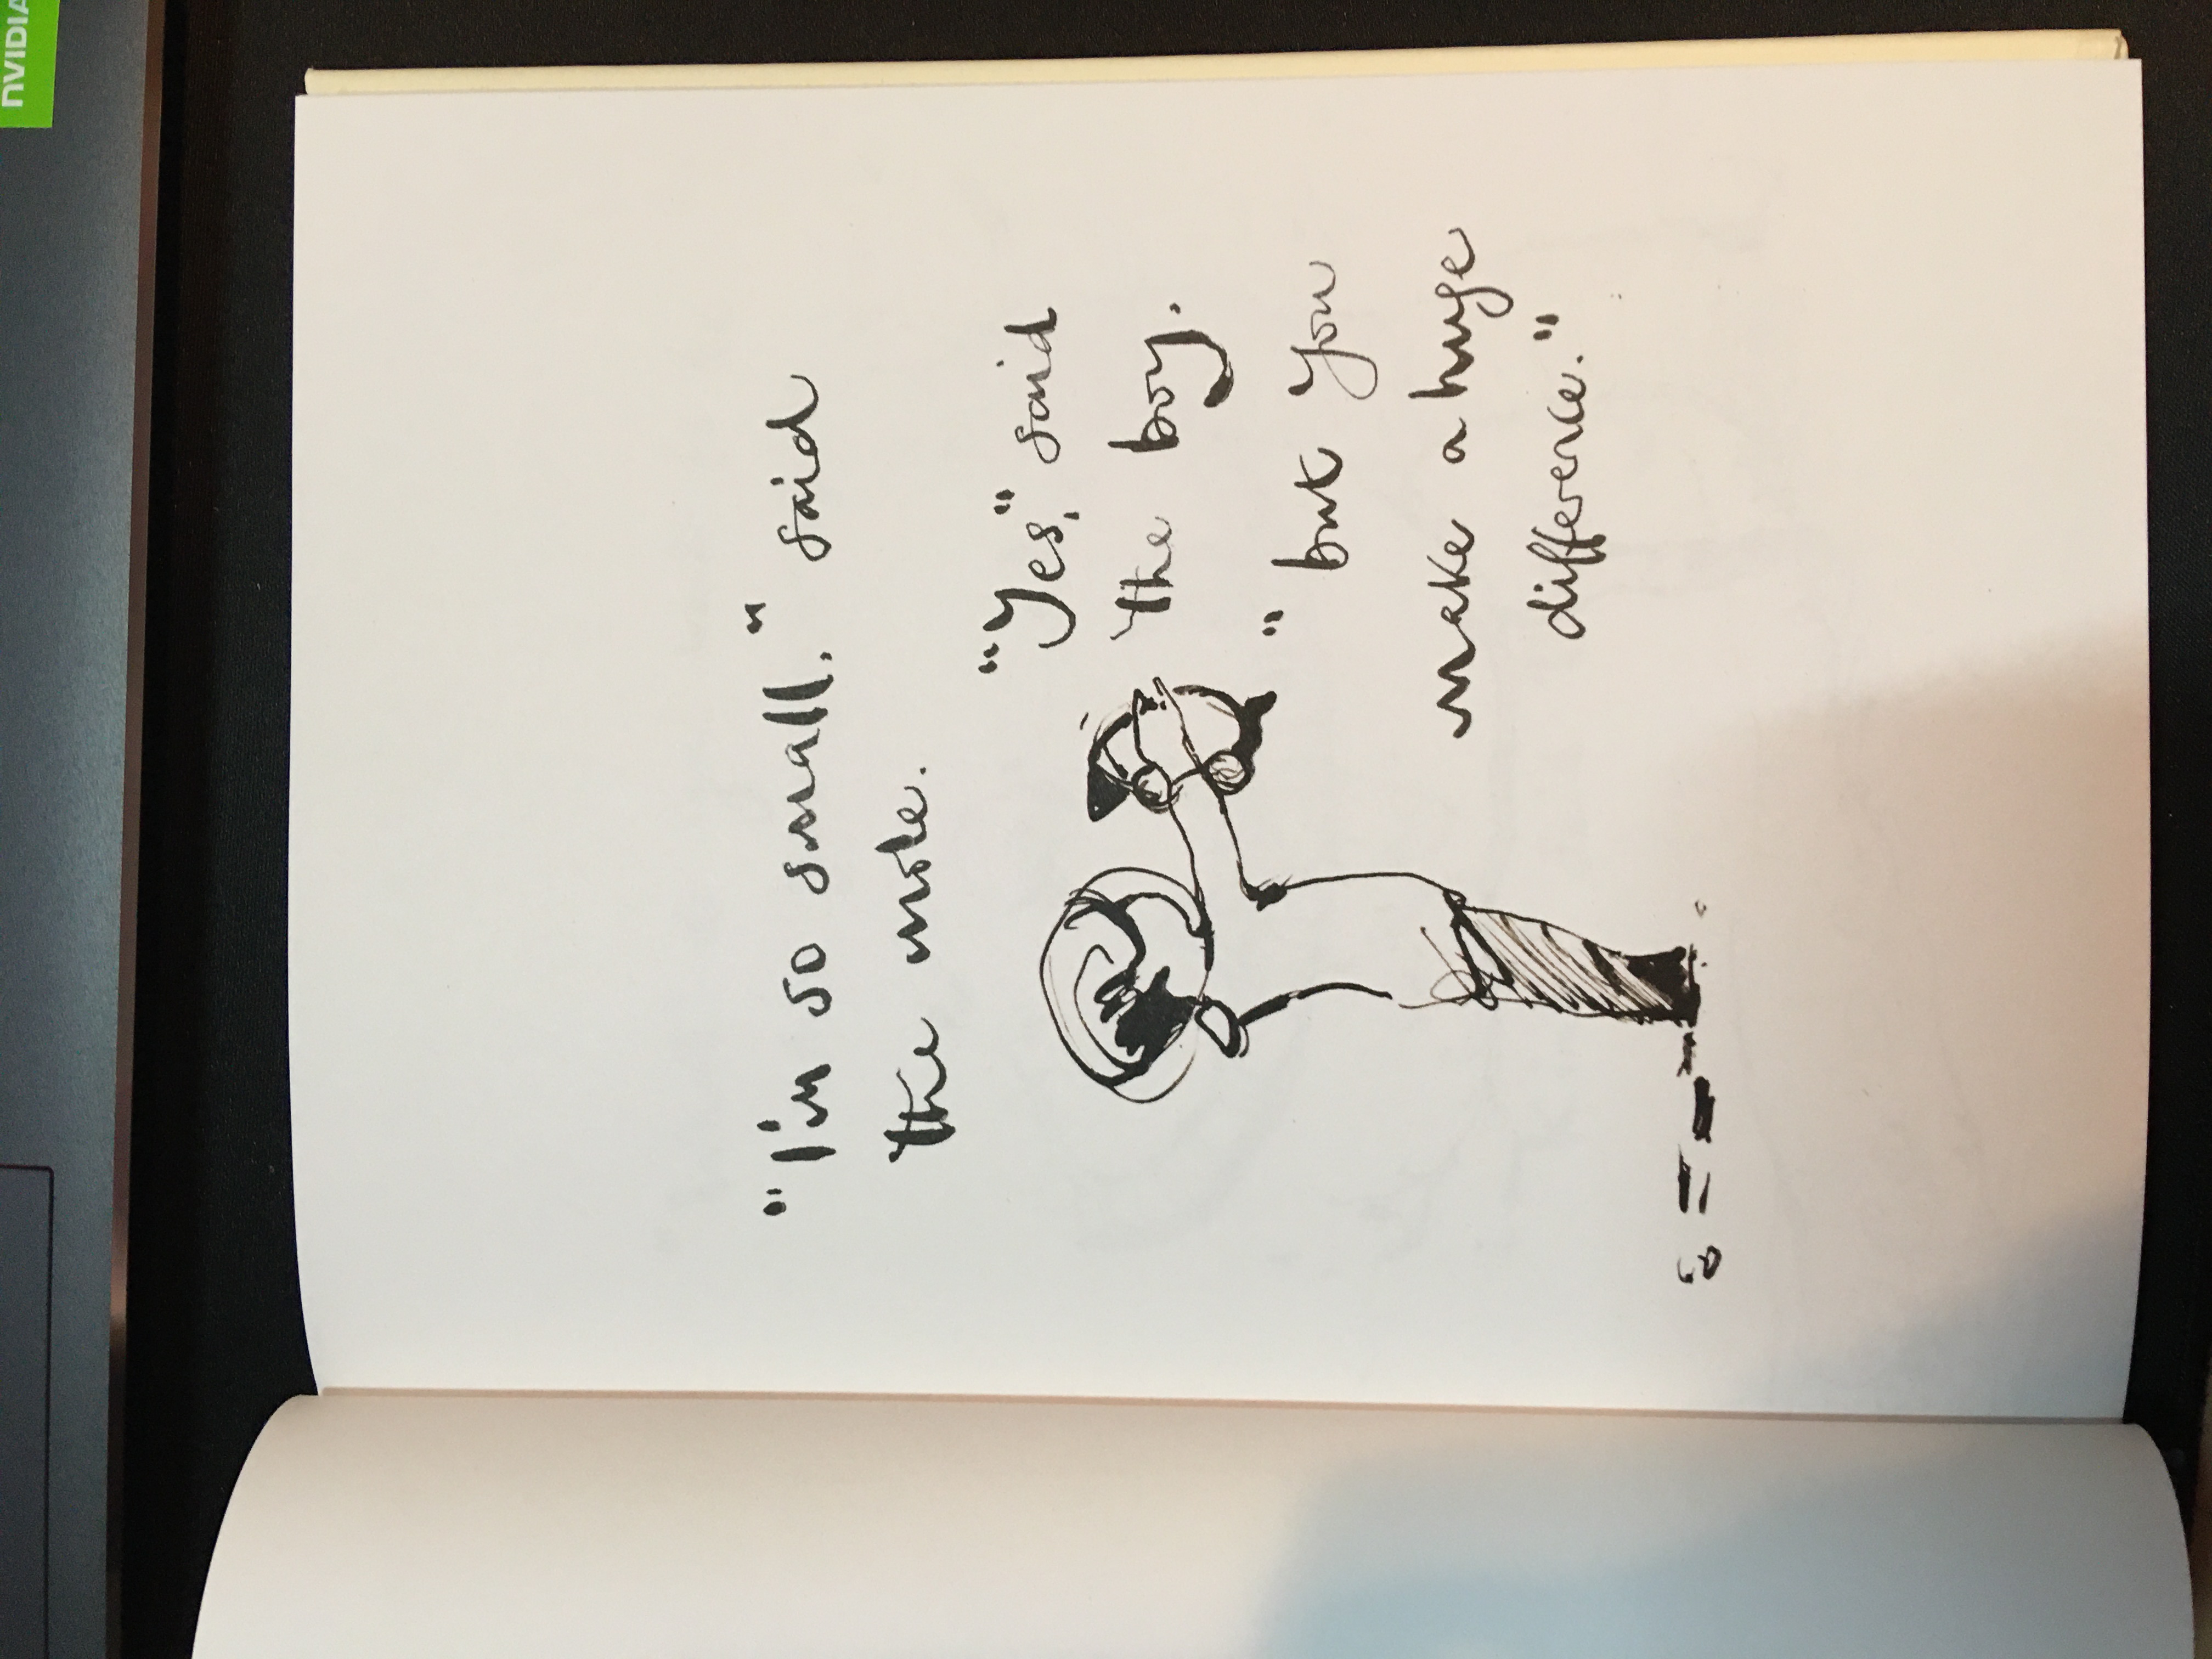 NVIDIA
"I'm so small." said
the mole.
"Yes," said
the boy.
"but you
make a huge
difference."